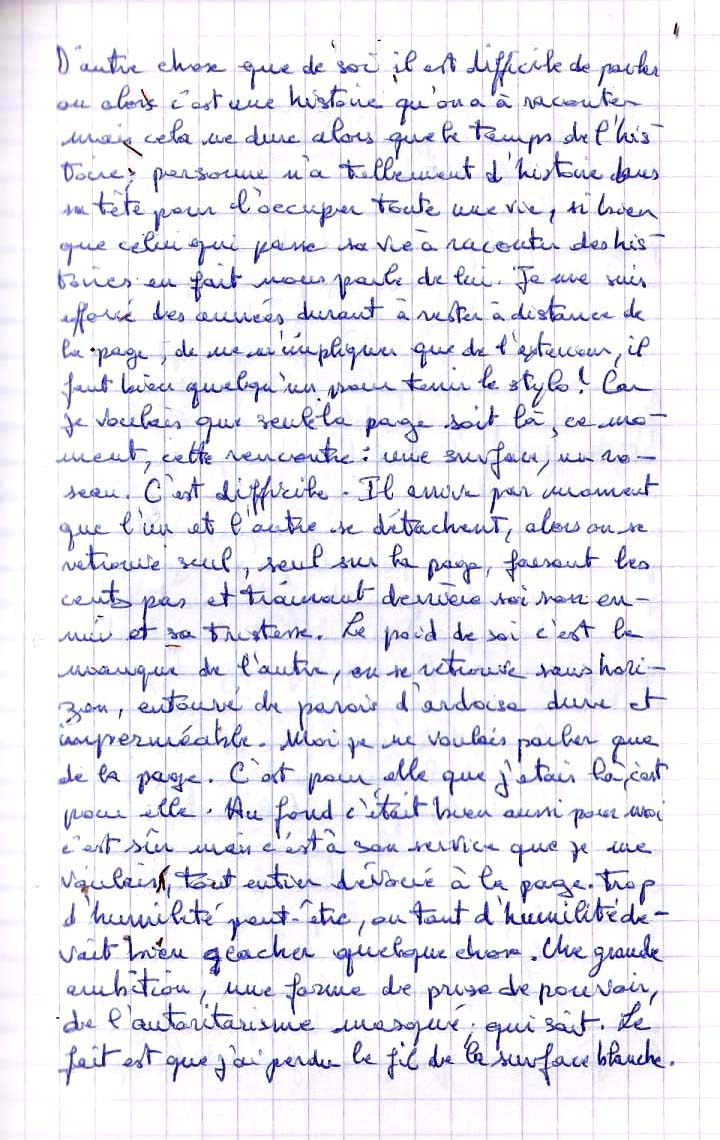 1
D'autre chose que de soi il est difficile de parler
ou alors c'est une histoire qu'on a à raconter
mais cela ne dure alors que le temps de l'his-
toire; personne n'a tellement d'histoire dans
sa tête pour l'occuper toute une vie, si bien
que celui qui passe sa vie à raconter des his-
toires en fait nous parle de lui. Je me suis
efforcé des années durant à rester à distance de
la page, de ne m'impliquer que de l'extérieur, il
faut bien quelqu'un pour tenir le stylo! Car
je voulais que seule la page soit là, ce mo-
ment, cette rencontre: une surface, un ro-
seau. C'est difficile. Il arrive par moment
que l'un et l'autre se détachent, alors on se
retrouve seul, seul sur la page, faisant les
cents pas et traînant derrière soi son en-
nui et sa tristesse. Le poid de soi c'est le
manque de l'autre, on se retrouve sans hori-
zon, entouré de parois d'ardoise dure et
imperméable. Moi je ne voulais parler que
de la page. C'est pour elle que j'étais là, c'est
pour elle. Au fond c'était bien aussi pour moi
c'est sûr mais c'est à son service que je me
voulais, tout entier dévoué à la page. Trop
d'humilité peut-être, ou tant d'humilité de-
vait bien geacher quelque chose. Une grande
ambition, une forme de prise de pouvoir,
de l'autoritarisme masqué, qui sait. Le
fait est que j'ai perdu le fil de la surface blanche.